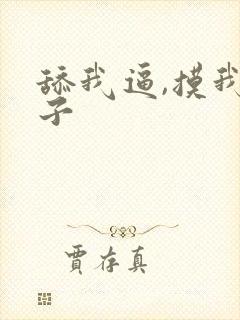 舔我逼,摸我
子
贾存真